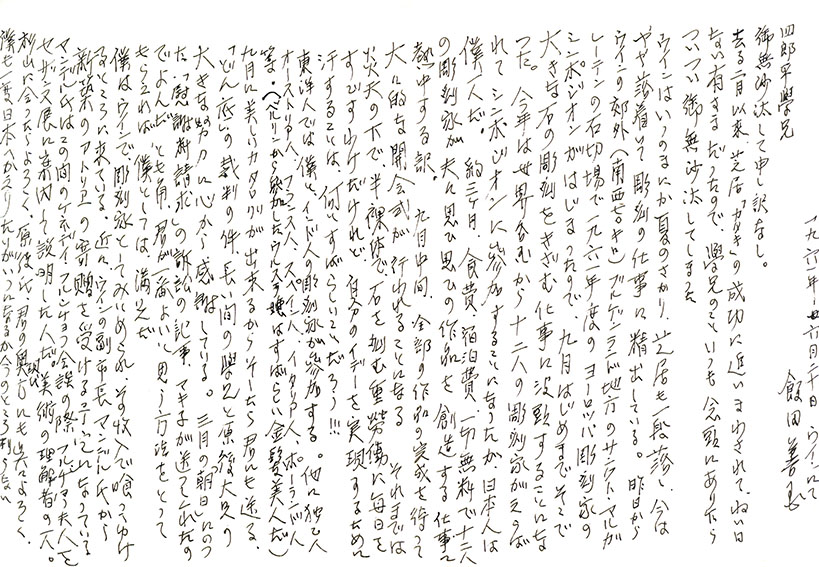 一九六一年 六月二十日 ウインにて
飯田善国
四郎早學兄
御無沙汰して申し訳なし。
去る二月以来、芝居「カブキ」の成功に追いまわされて、ねい日
ない有さまだったので、學兄のこといつも念頭にありながら
ついつい御無沙汰してしまった
ウインはいつのまにか夏のさかり、芝居も一段落し、今は
やや落着いて彫刻の仕事に精出している。昨日から
ウインの郊外(南西五〇キロ)ブルゲンランド地方のサンクト・マルガ
レーテンの石切場で一九六一年度のヨーロッパ彫刻家の
シンポジオンがはじまったので、九月はじめまでそこで
大きな石の彫刻をきざむ仕事に没頭することにな
った。今年は世界各国から十二人の彫刻家がえらば
れてシンポジオンに参加することになったが、日本人は
僕一人だ。約三ヶ月、食費、宿泊費、一切無料で十二人
の彫刻家が夫々思ひ思ひの作品を創造する仕事に
熱中する訳。九月中旬、全部の作品の完成を待って
大々的な開会式が行われることになる。それまでは
炎天の下で、半裸体で、石を刻む重労働に毎日を
すごすわけだけれど、自分のイデーを実現するために
汗することは、何とすばらしいことだろう!!!
東洋人では僕とインド人の彫刻家が参加する。他に独乙人
オーストリア人、フランス人、スペイン人、イタリア人、ポーランド人
等。(ベルリンから参加したウルスラ嬢はすばらしい金髪美人だ)
九月に美しいカタログが出来るからそしたら君にも送る。
「どん底」の裁判の件、長い間の學兄と原後夫兄の
大きな努力に心から感謝している。三月の朝日にのっ
た「慰謝料請求」の訴訟の記事、マキ子が送ってくれたの
でよんだ。とも角、君が一番よいと思う方法をとって
もらえれば、僕としては、満足だ
僕はウインで彫刻家としてみとめられ、その収入で喰ってゆけ
るところに来ている。近々、ウインの副市長マンデル氏から
新築のアトリエの寄贈を受ける事になっている
マンデル氏はこの間のケネディ、フルシチョフ会談の際、フルシチョフ夫人を
セザンヌ展に案内して説明した人だ。美術の理解者の一人。
杉山に会ったらよろしく。原後氏、君の奥さんにも呉々もよろしく。
僕も一度日本へかえりたいがいつになるか今のところ判らない